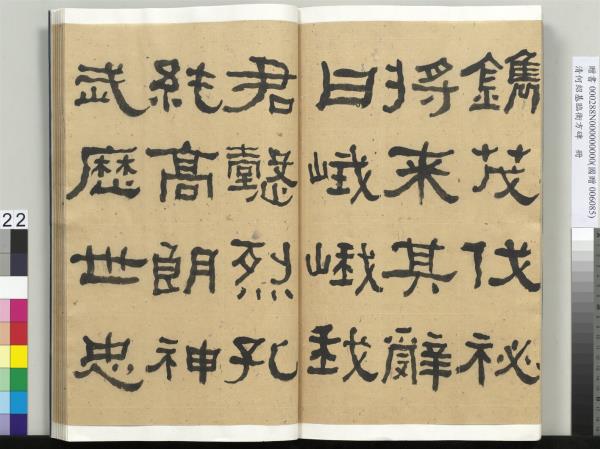 鐫茂伐祕
將来其辭
曰峨峨我
君懿烈孔
純高朗神
武歷世忠
贈書 000288N000000000(國贈 006085)
清何紹基臨衡方碑 冊
22